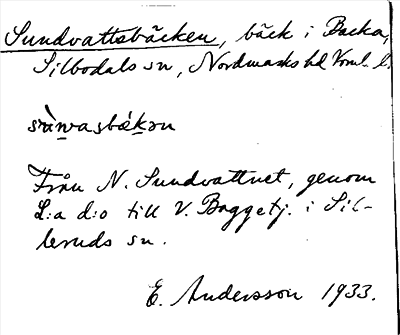 Sundvattsbäcken, bäck i Backa,
Silbodals sn, Nordmarks hd Verml. l.
Från N. Sundvattnet, genom
L:a d:o till V. Baggetj. i Sil-
leruds sn.
E. Andersson 1933.